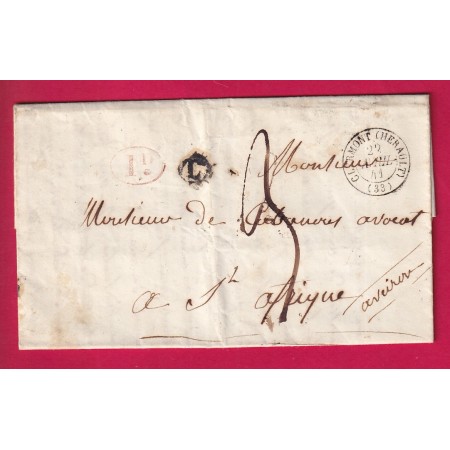 CLERMONT (HERAULT)
22
AVRIL
41
(33)
1D
L
3
Monsieur
Monsieur de avocat
a St afrique
aveiron